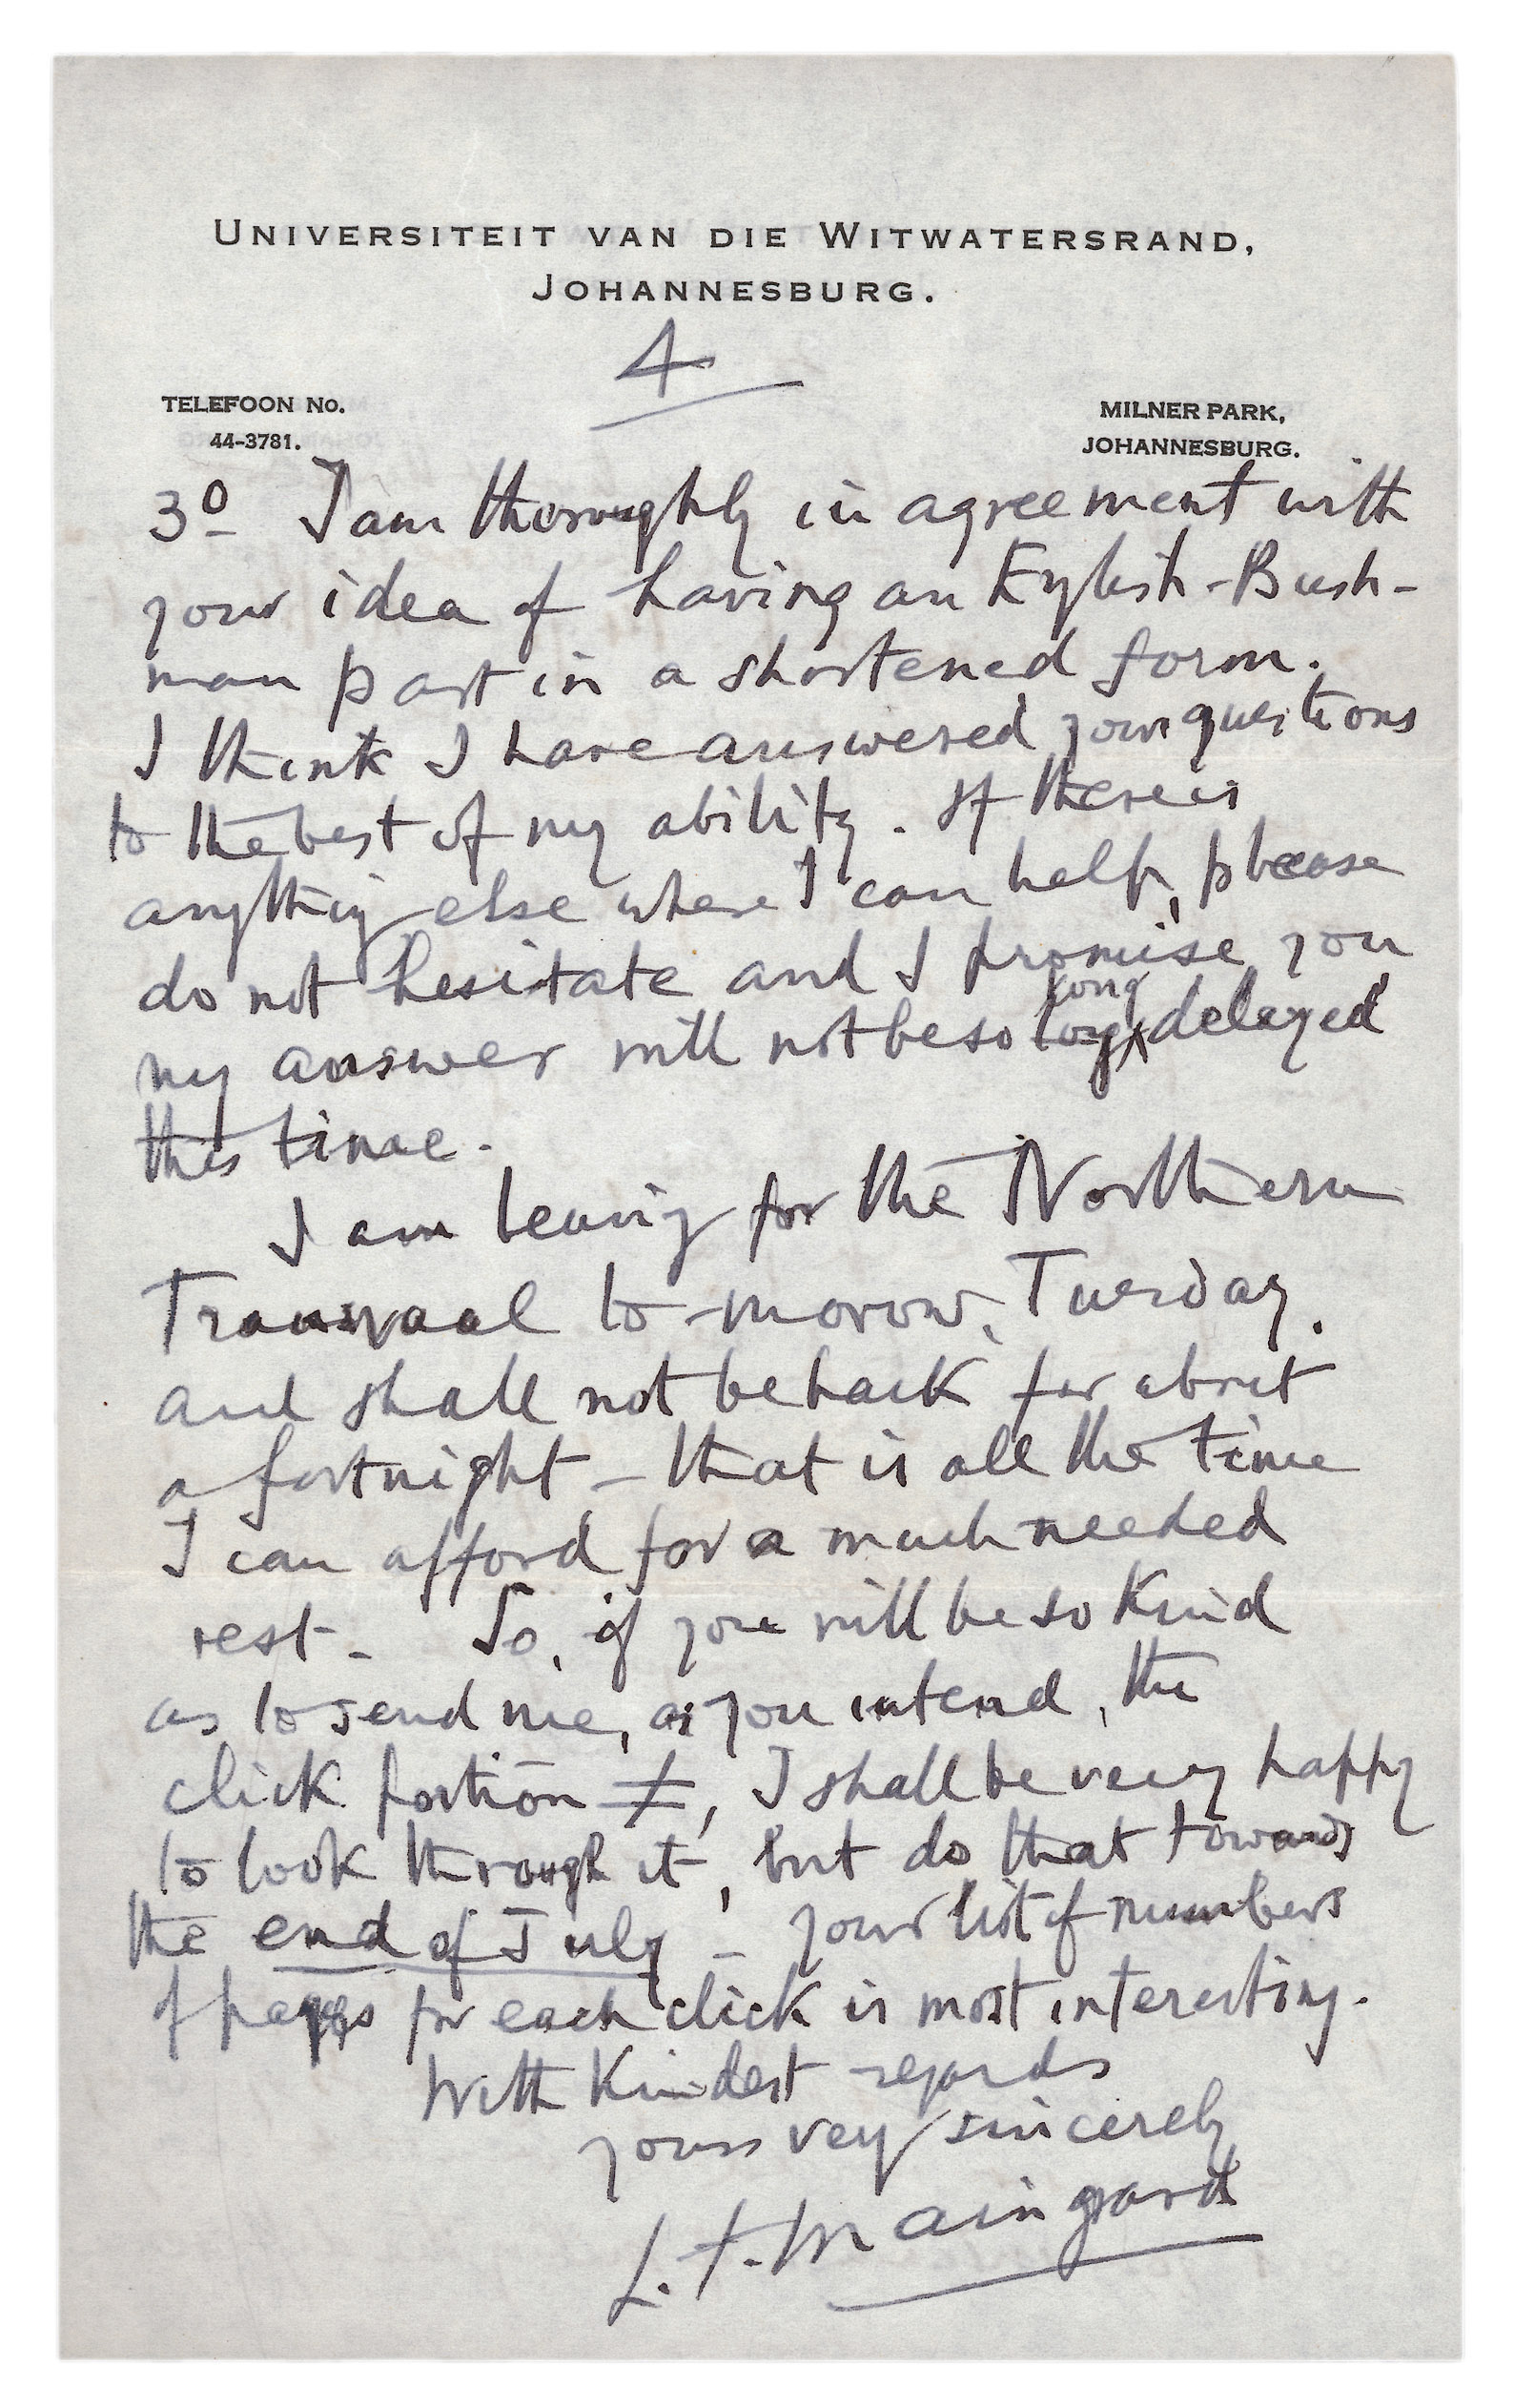 UNIVERSITEIT VAN DIE WITWATERSRAND,
JOHANNESBURG.
4
TELEFOON No.
44-3781.
MILNER PARK,
JOHANNESBURG.
3º I am thoroughly in agreement with
your idea of having an English-Bush-
man part in a shortened form.
I think I have answered your questions
to the best of my ability. If there is
anything else where I can help, please
do not hesitate and I promise you
my answer will not be so long delayed
this time.
I am leaving for the Northern
Transvaal to-morow, Tuesday.
and shall not be back for about
a fortnight - that is all the time
I can afford for a much needed
rest. So, if you will be so kind
as to send me, as you intend, the
click portion ≠, I shall be very happy
to look through it, but do that towards
the end of July - your list of numbers
of pages for each click is most interesting.
With kindest regards
yours very sincerely
L. F. Maingard